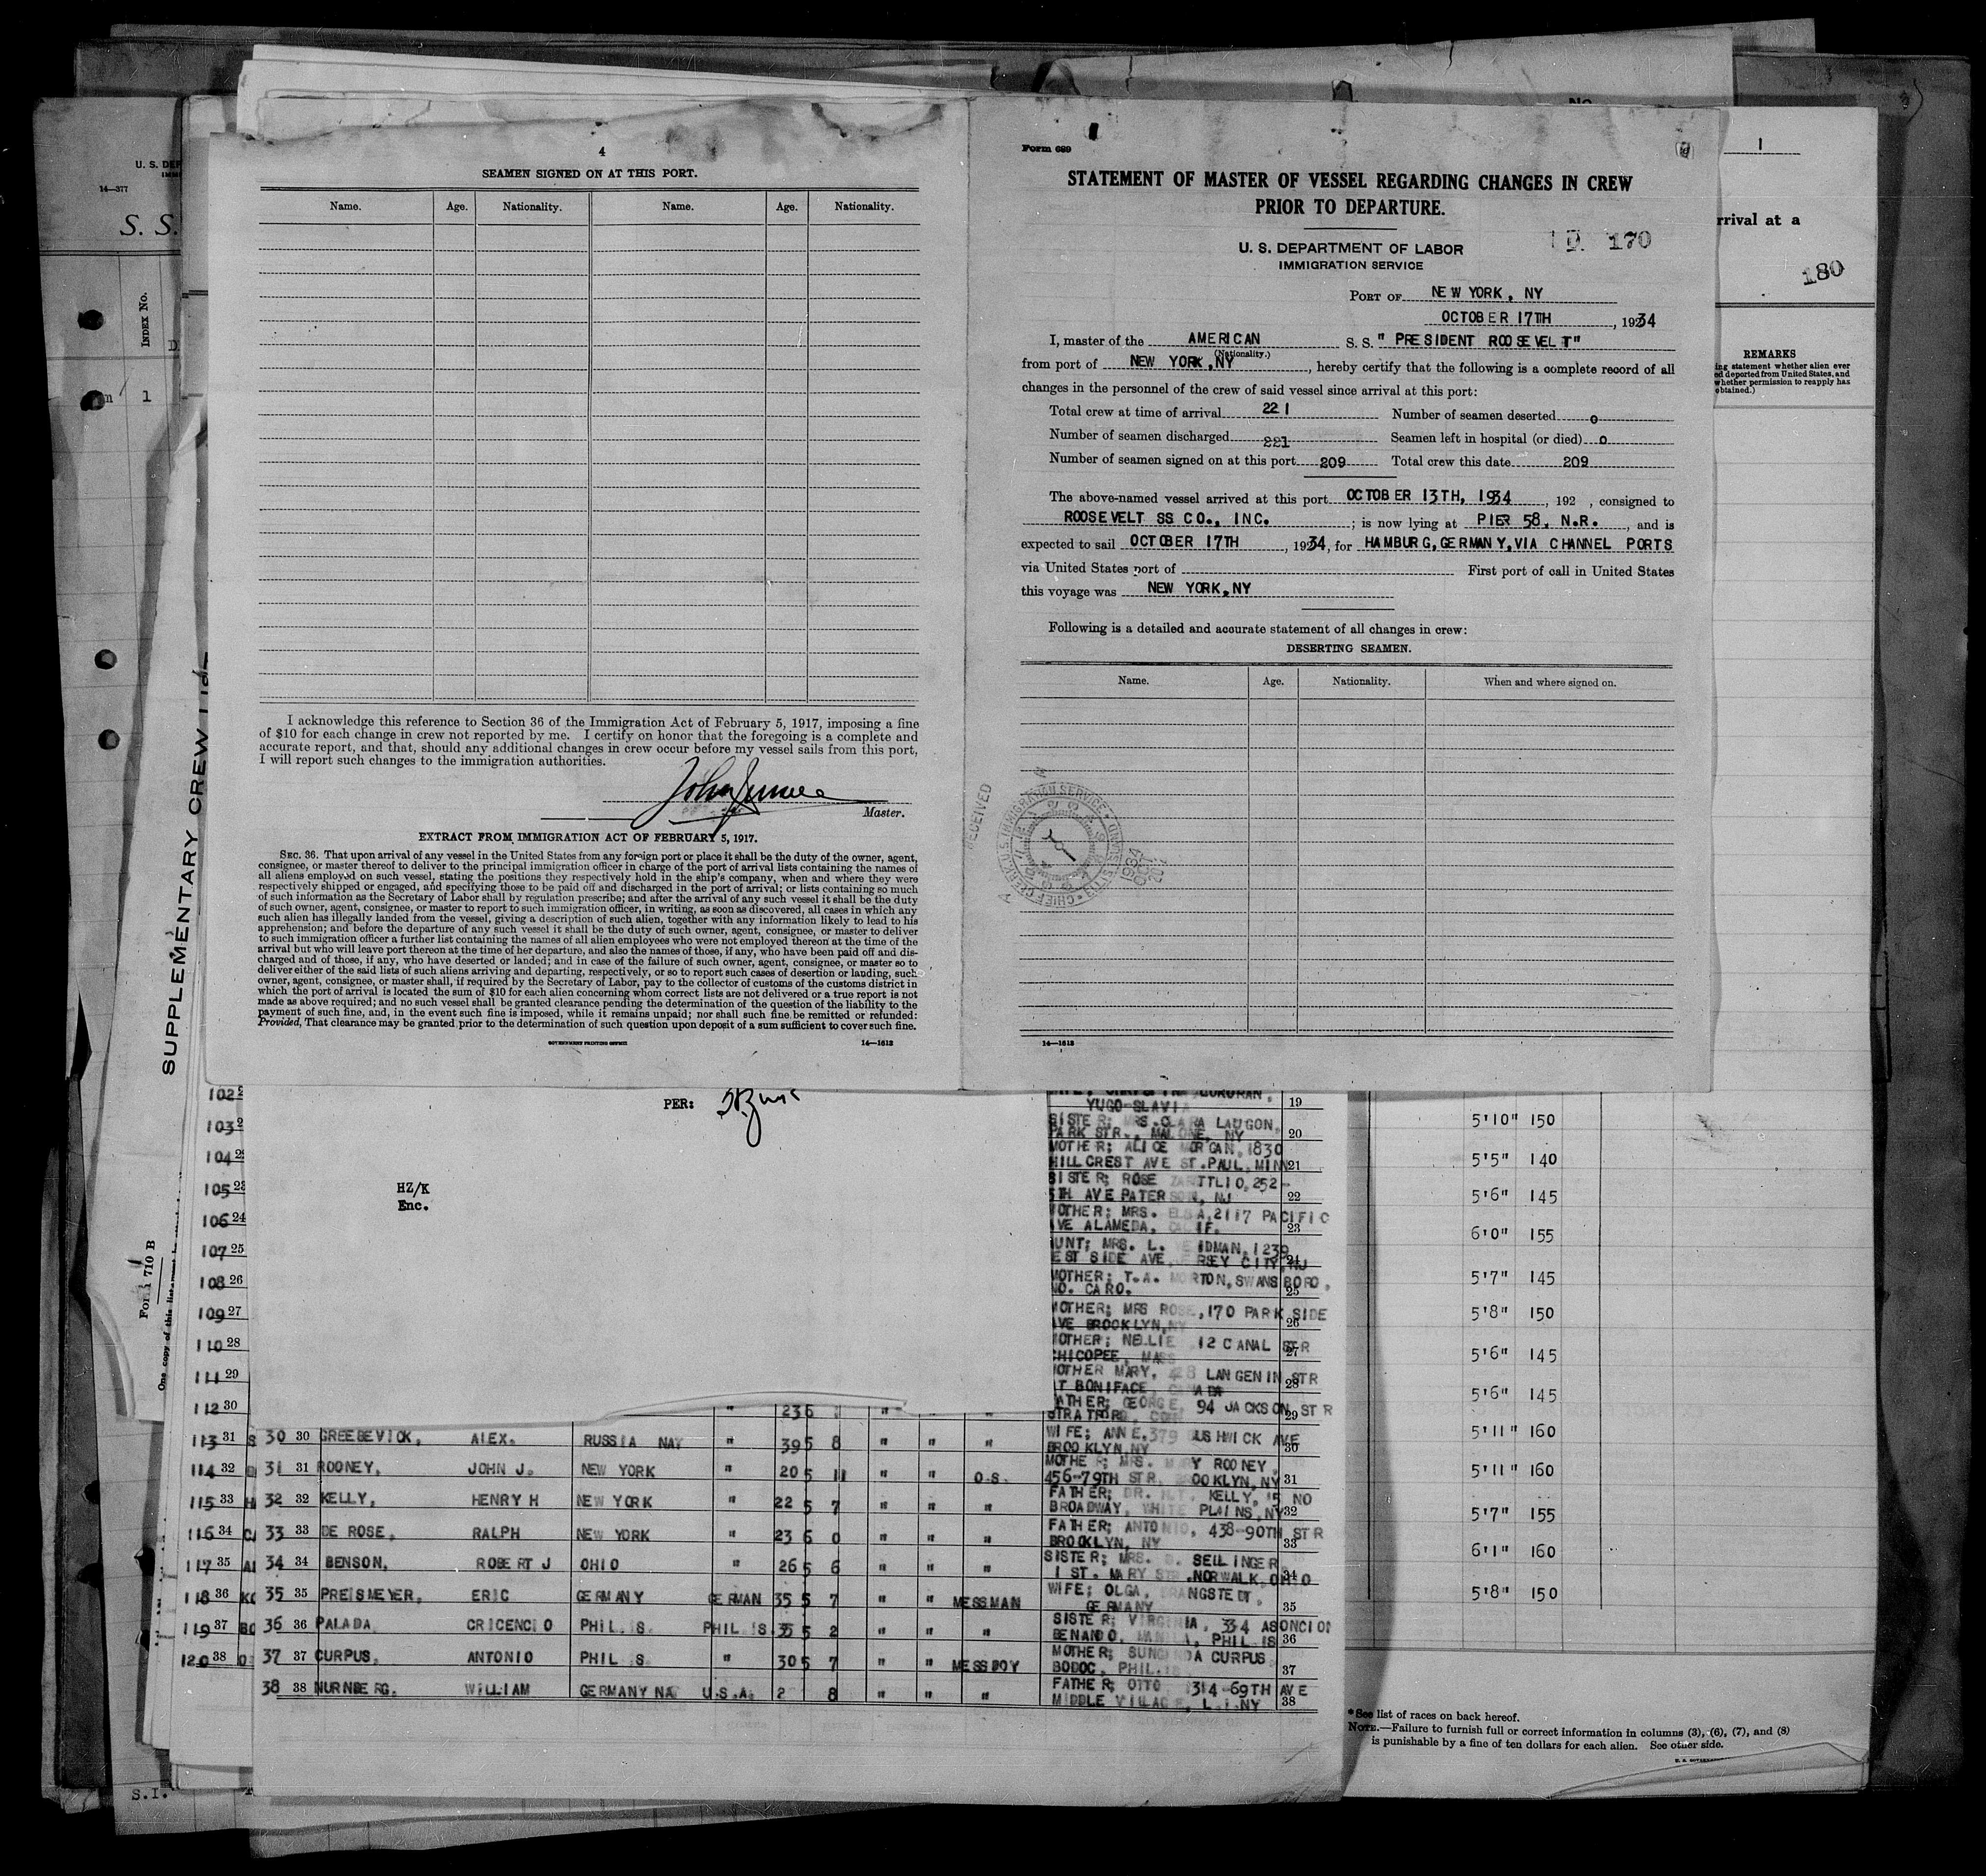 4
SEAMEN SIGNED ON AT THIS PORT.
Name. Age. Nationality. Name. Age. Nationality.
I acknowledge this reference to Section 36 of the Immigration Act of February 5, 1917, imposing a fine
of $10 for each change in crew not reported by me. I certify on honor that the foregoing is a complete and
accurate report, and that, should any additional changes in crew occur before my vessel sails from this port,
I will report such changes to the immigration authorities.
Master.
EXTRACT FROM IMMIGRATION ACT OF FEBRUARY 5, 1917.
SEC. 36. That upon arrival of any vessel in the United States from any foreign port or place it shall be the duty of the owner, agent,
consignee, or master thereof to deliver to the principal immigration officer in charge of the port of arrival lists containing the names of
all aliens employed on such vessel, stating the positions they respectively hold in the ship's company, when and where they were
respectively shipped or engaged, and specifying those to be paid off and discharged in the port of arrival; or lists containing so much
of such information as the Secretary of Labor shall by regulation prescribe; and after the arrival of any such vessel it shall be the duty
of such owner, agent, consignee, or master to report to such immigration officer, in writing, as soon as discovered, all cases in which any
such alien has illegally landed from the vessel, giving a description of such alien, together with any information likely to lead to his
apprehension; and before the departure of any such vessel it shall be the duty of such owner, agent, consignee, or master to deliver
to such immigration officer a further list containing the names of all alien employees who were not employed thereon at the time of the
arrival but who will leave port thereon at the time of her departure, and also the names of those, if any, who have been paid off and dis-
charged and of those, if any, who have deserted or landed; and in case of the failure of such owner, agent, consignee, or master so to
deliver either of the said lists of such aliens arriving and departing, respectively, or so to report such cases of desertion or landing, such
owner, agent, consignee, or master shall, if required by the Secretary of Labor, pay to the collector of customs of the customs district in
which the port of arrival is located the sum of $10 for each alien concerning whom correct lists are not delivered or a true report is not
made as above required; and no such vessel shall be granted clearance pending the determination of the question of the liability to the
payment of such fine, and, in the event such fine is imposed, while it remains unpaid; nor shall such fine be remitted or refunded:
Provided, That clearance may be granted prior to the determination of such question upon deposit of a sum sufficient to cover such fine.
GOVERNMENT PRINTING OFFICE 14—1612
Form 689
STATEMENT OF MASTER OF VESSEL REGARDING CHANGES IN CREW
PRIOR TO DEPARTURE.
U. S. DEPARTMENT OF LABOR
IMMIGRATION SERVICE
170
PORT OF NEW YORK, NY
OCTOBER 17TH, 1934
I, master of the AMERICAN S. S. " PRESIDENT ROOSEVELT"
(Nationality.)
from port of NEW YORK, NY, hereby certify that the following is a complete record of all
changes in the personnel of the crew of said vessel since arrival at this port:
Total crew at time of arrival 221 Number of seamen deserted 0
Number of seamen discharged 221 Seamen left in hospital (or died) 0
Number of seamen signed on at this port 209 Total crew this date 209
The above-named vessel arrived at this port OCTOBER 13TH, 1934, 192 , consigned to
ROOSEVELT SS CO., INC. ; is now lying at PIER 58, N.R., and is
expected to sail OCTOBER 17TH, 1934, for HAMBURG, GERMANY, VIA CHANNEL PORTS
via United States port of First port of call in United States
this voyage was NEW YORK, NY
Following is a detailed and accurate statement of all changes in crew:
DESERTING SEAMEN.
Name. Age. Nationality. When and where signed on.
RECEIVED
CHIEF CLERK U.S. IMMIGRATION SERVICE
ELLIS ISLAND
1934
OCT
14—1612
U. S. DEP
14—377
S. S.
INDEX No.
1
SUPPLEMENTARY CREW
Form 710 B
One copy of this list
S.I.
No.
1
rrival at a
180
REMARKS
ing statement whether alien ever
ed deported from United States, and
whether permission to reapply has
obtained.)
PER:
HZ/K
Enc.
102
103
104
105 23
106 24
107 25
108 26
109 27
110 28
111 29
112 30
113 31
114 32
115 33
116 34
117 35
118 36
119 37
120 38
YUGO-SLAVI 19
SISTER; MRS. CLARA LAUGON,
PARK STR., MALONE, NY 20
MOTHER; ALICE MORGAN, 1830
HILLCREST AVE ST.PAUL, MINN 21
SISTER; ROSE 252-
5TH AVE PATERSON, NJ 22
MOTHER; MRS. ELSA, 2117 PACIFIC
AVE ALAMEDA, CALIF. 23
AUNT; MRS. L. IDMAN, 1239
EST SIDE AVE, JERSEY CITY, NJ
MOTHER; T.A. MORTON, SWANSBORO,
NO. CARO. 25
MOTHER; MRS ROSE, 170 PARK SIDE
AVE BROOKLYN, NY 26
MOTHER; NELLIE 12 CANAL STR
CHICOPEE, MASS 27
MOTHER MARY, LANGENIN STR
ST BONIFACE, CANADA 28
FATHER; GEORGE, 94 JACKSON STR
STRATFORD, CONN 29
30 30 GREBEVICK, ALEX. RUSSIA NAT " 39 5 8 " " " WIFE; ANNE, 379 BUSHWICK AVE
BROOKLYN, NY 30
31 31 ROONEY, JOHN J. NEW YORK " 20 5 11 " " O.S. MOTHER; MRS. MARY ROONEY
456-79TH STR. BROOKLYN, NY 31
32 32 KELLY, HENRY H NEW YORK " 22 5 7 " " " FATHER; DR. H.T. KELLY, 5 NO
BROADWAY, WHITE PLAINS, NY 32
33 33 DE ROSE, RALPH NEW YORK " 23 6 0 " " " FATHER; ANTONIO, 438-90TH STR
BROOKLYN, NY 33
34 34 BENSON, ROBERT J OHIO " 26 5 6 " " " SISTER; MRS. SELLINGER
1 ST. MARY STR. NORWALK, OHIO 34
35 35 PREISMEYER, ERIC GERMANY GERMAN 35 5 7 " " MESSMAN WIFE; OLGA, DRANGSTEDT,
GERMANY 35
36 36 PALADA, CRICENCIO PHIL.IS. PHIL.IS. 35 5 2 " " " SISTER; VIRGINIA, 334 ASONCION
BENANDO, MANILA, PHIL.IS 36
37 37 CURPUS, ANTONIO PHIL S. " 30 5 7 " " MESSBOY MOTHER; CURPUS
BODOC, PHIL.IS 37
38 38 NURNBERG, WILLIAM GERMANY NAT U.S.A. 2 8 " " " FATHER; OTTO, 314-69TH AVE
MIDDLE VILLAGE, L.I.NY 38
5'10" 150
5'5" 140
5'6" 145
6'0" 155
5'7" 145
5'8" 150
5'6" 145
5'6" 145
5'11" 160
5'11" 160
5'7" 155
6'1" 160
5'8" 150
*See list of races on back hereof.
NOTE.—Failure to furnish full or correct information in columns (3), (6), (7), and (8)
is punishable by a fine of ten dollars for each alien. See other side.